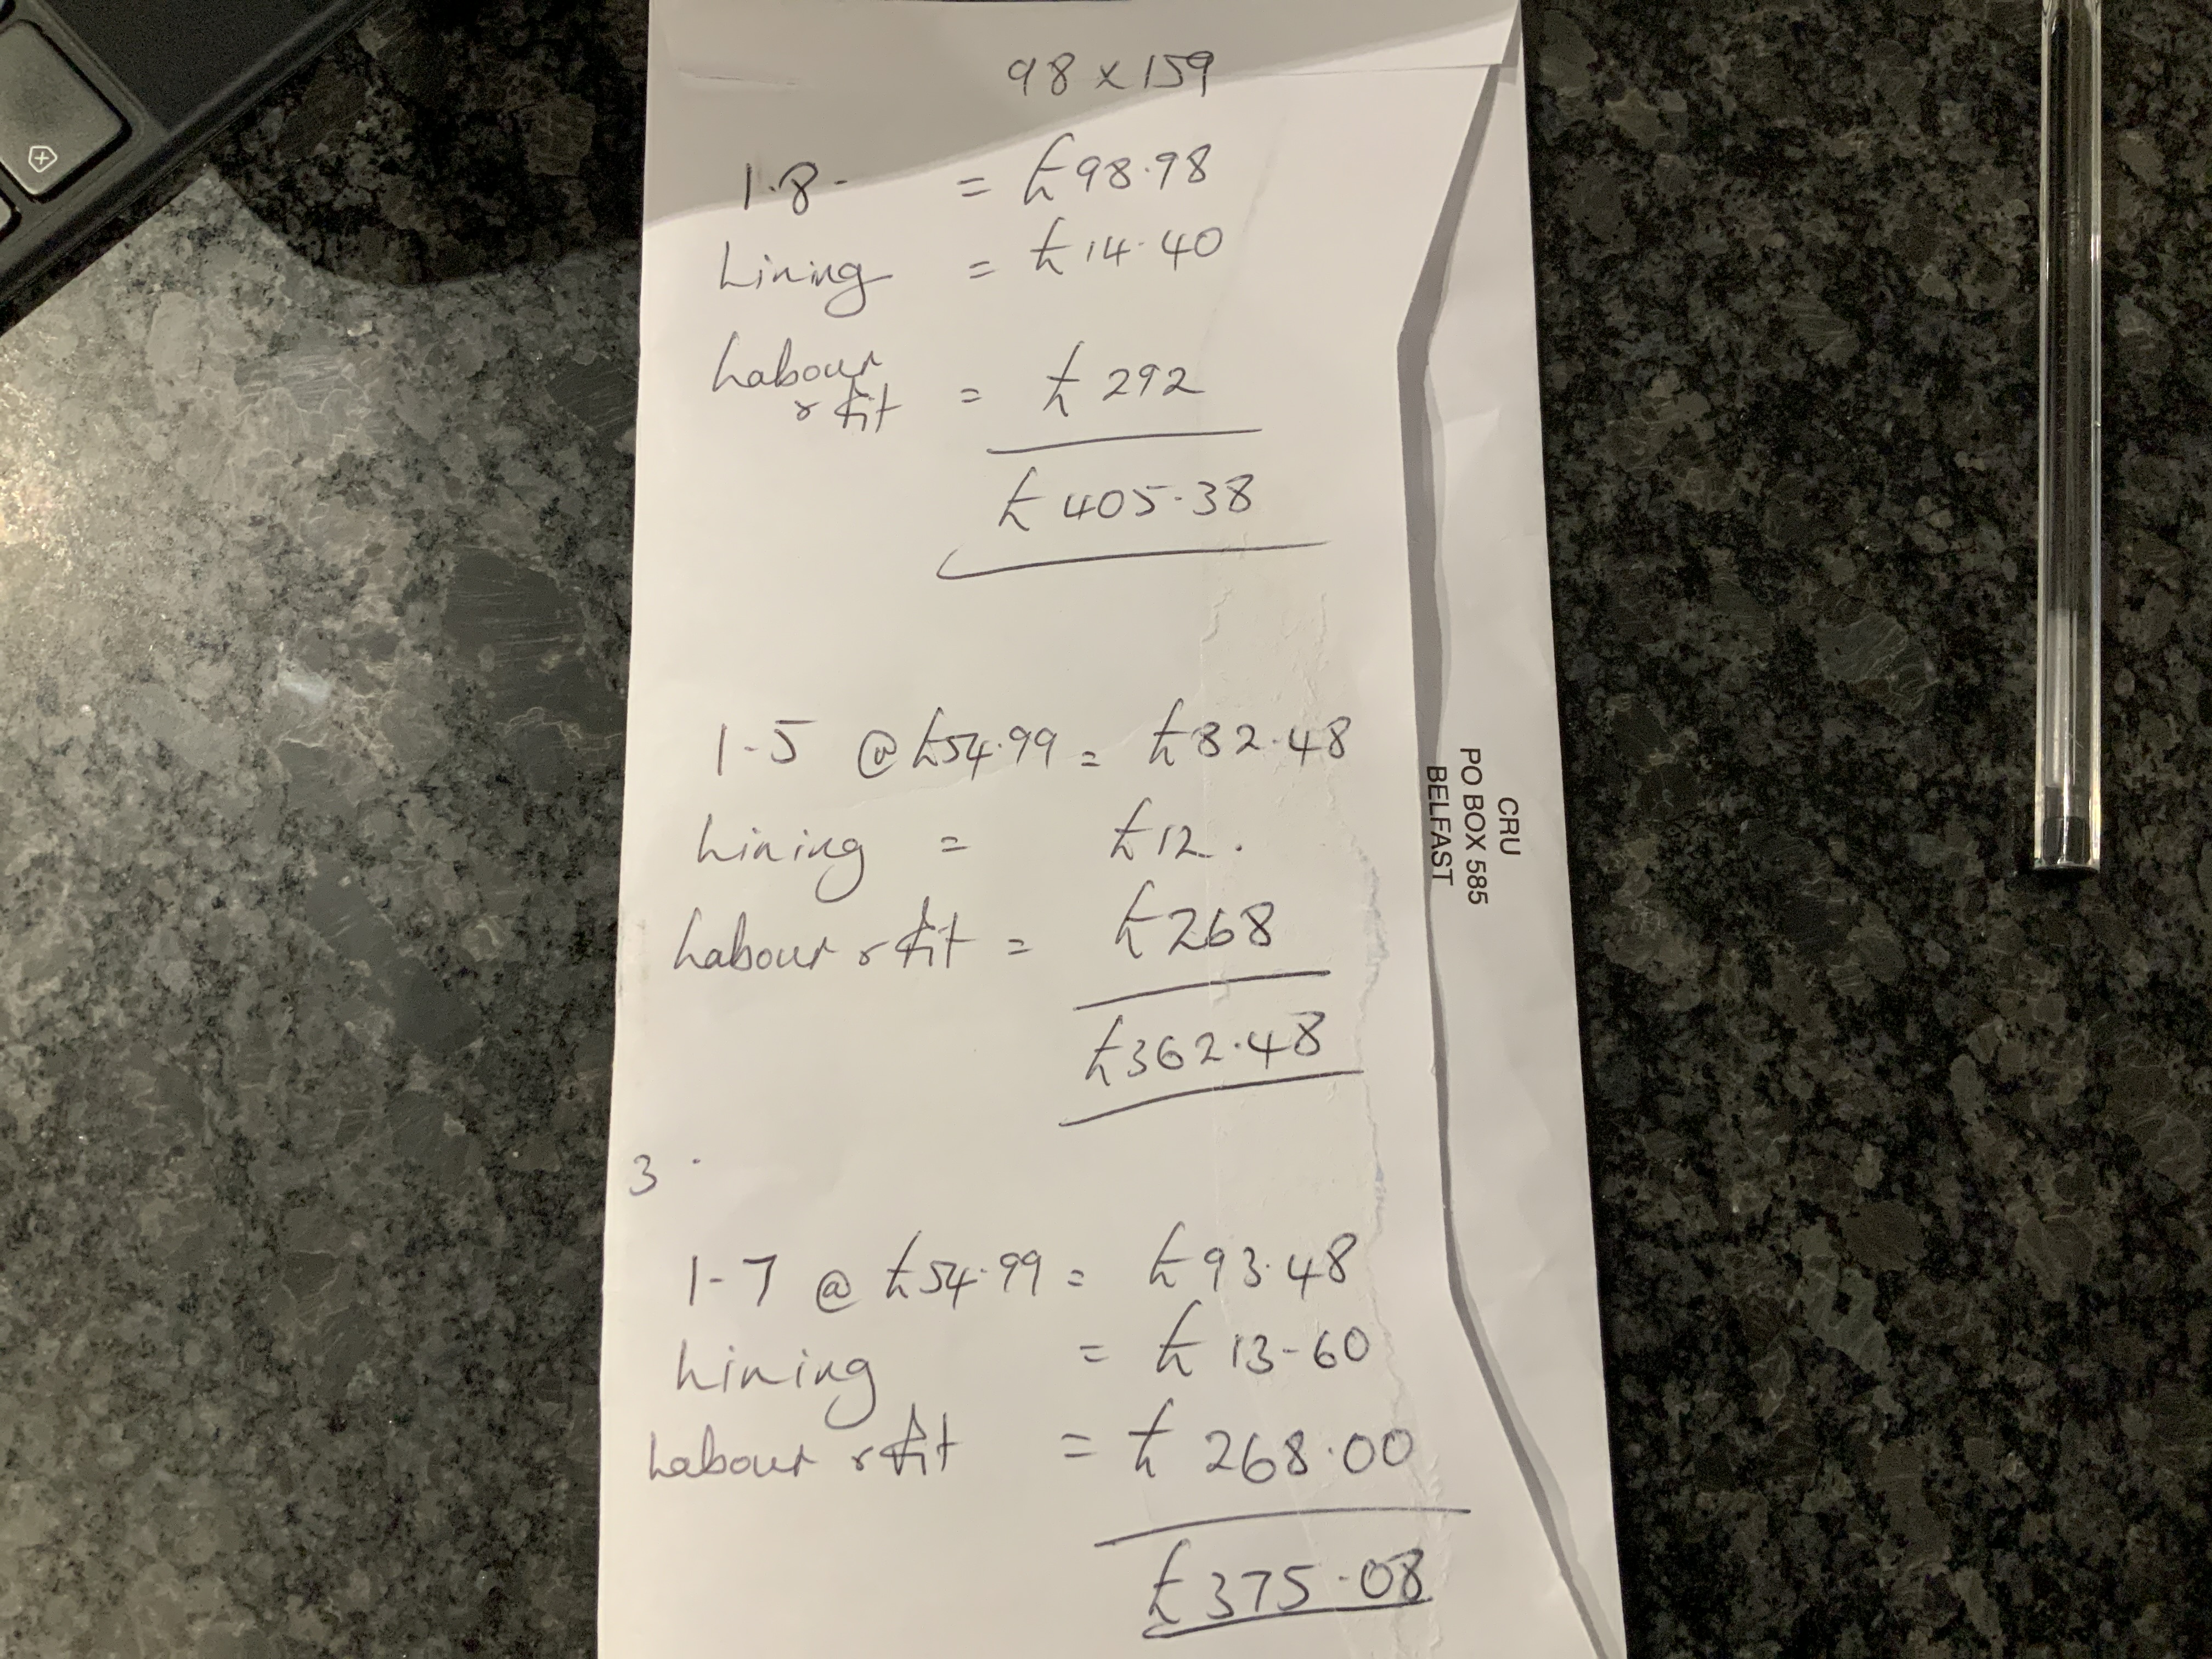 98 x 159
1.8 - = £98.98
Lining = £14.40
Labour
& fit = £292
£405.38
1-5 @ £54.99 = £82.48
Lining = £12.
Labour & fit = £268
£362.48
3 .
1-7 @ £54.99 = £93.48
Lining = £13-60
Labour & fit = £268.00
£375.08
CRU
PO BOX 585
BELFAST